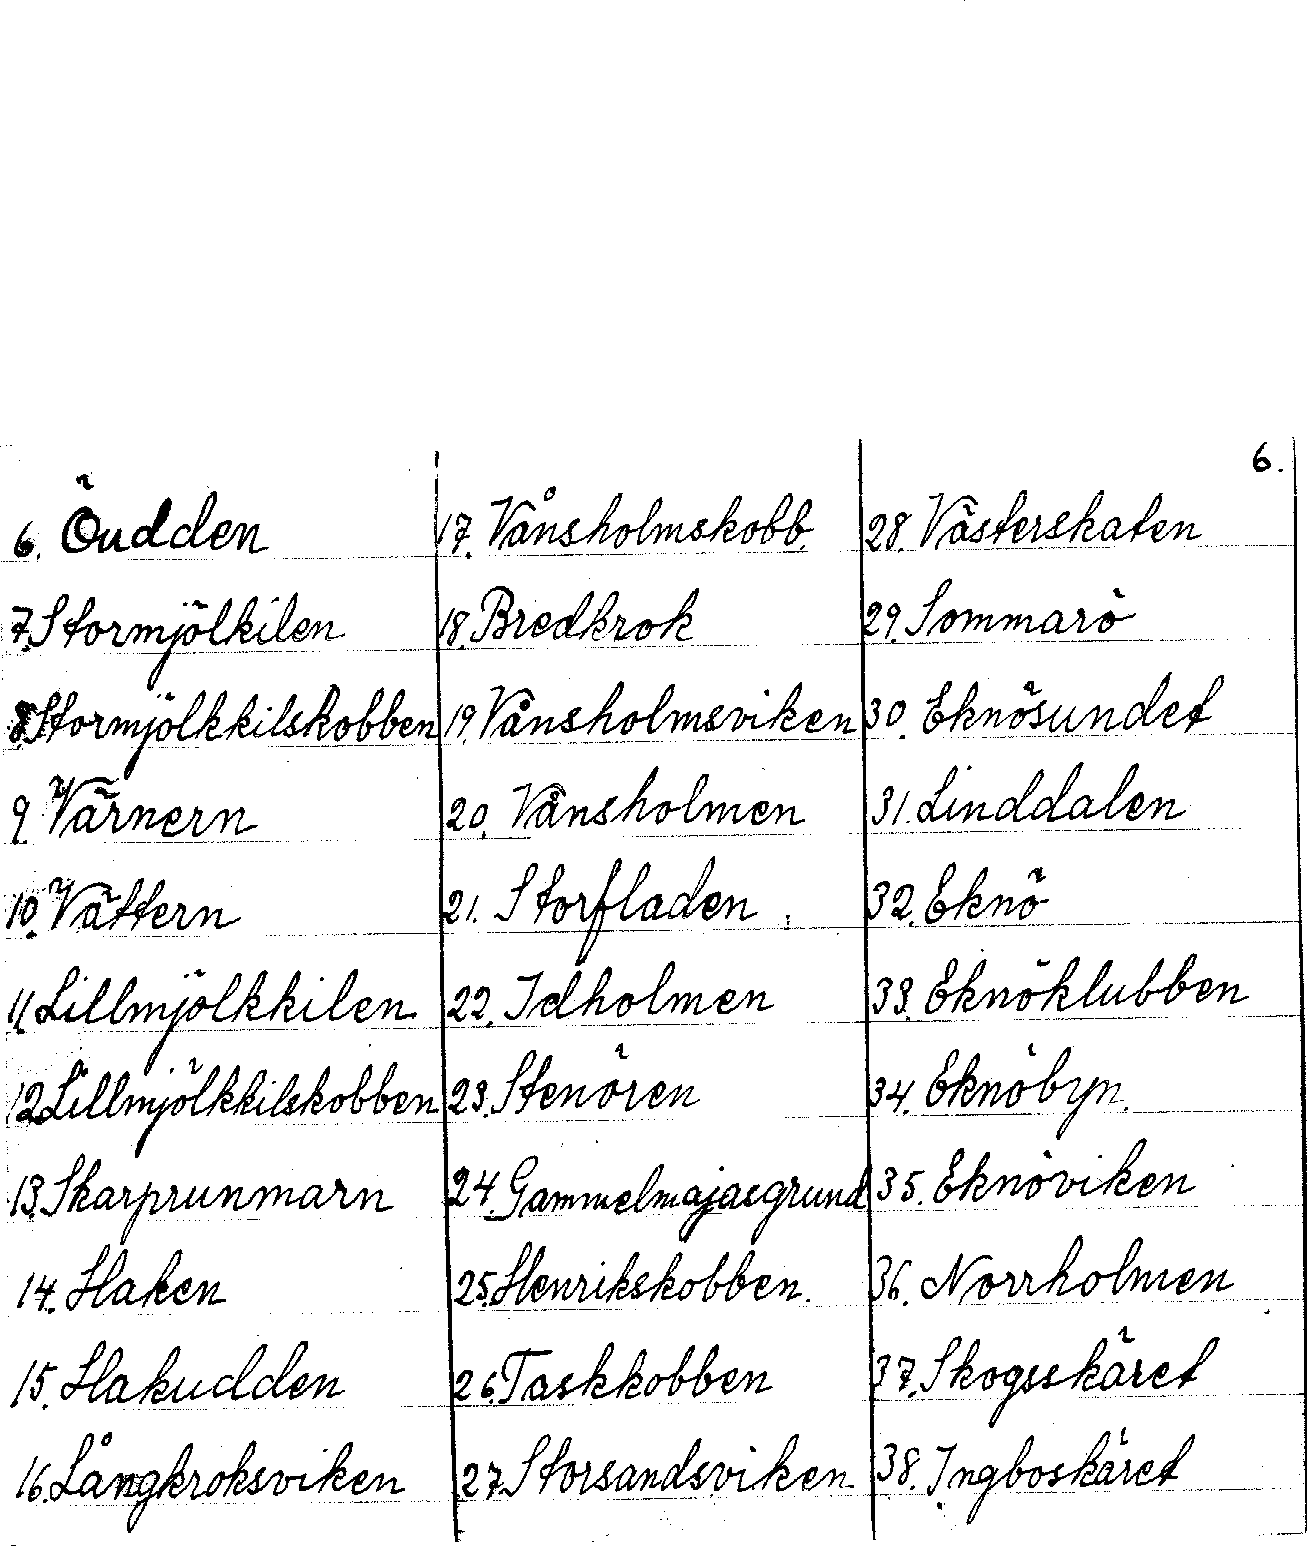 6.
6. Öudden
7. Stormjölkilen
8. Stormjölkkilskobben
9. Värnern
10. Vättern
11. Lillmjölkkilen
12. Lillmjölkkilskobben
13. Skarprunmarn
14. Haken
15. Hakudden
16. Långkroksviken
17. Vånsholmskobb.
18. Bredkrok
19. Vånsholmsviken
20. Vånsholmen
21. Storfladen
22. Idholmen
23. Stenören
24. Gammelmajasgrund
25. Henrikskobben.
26. Taskkobben
27. Storsandsviken
28. Västerskaten
29. Sommarö
30. Eknösundet
31. Linddalen
32. Eknö
33. Eknöklubben
34. Eknöbyn.
35. Eknöviken
36. Norrholmen
37. Skogsskäret
38. Ingboskäret